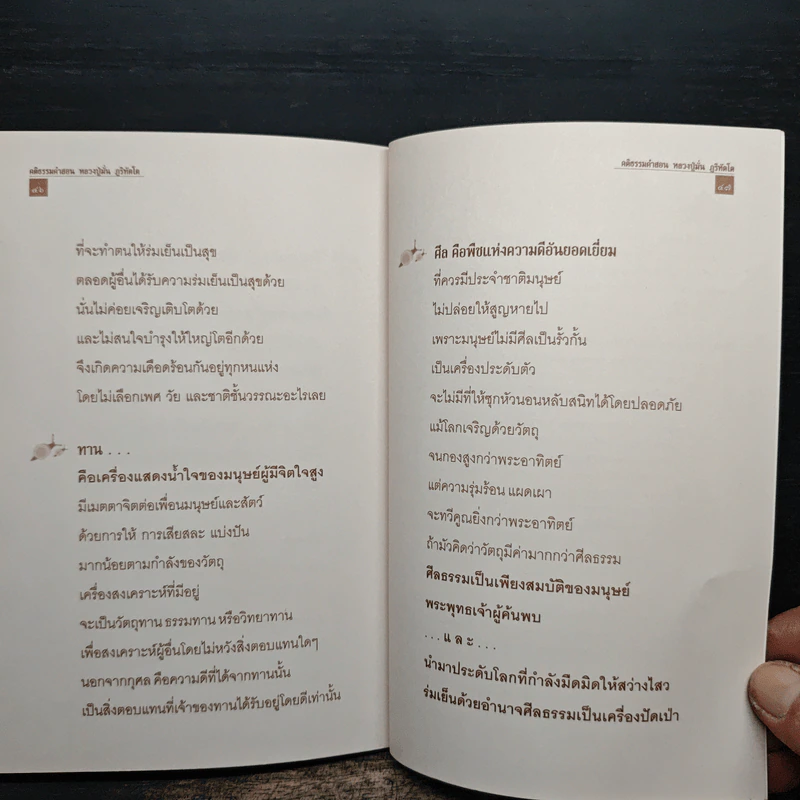 คติธรรมคำสอน หลวงปู่มั่น ภูริทัตโต
๔๖
ที่จะทำตนให้ร่มเย็นเป็นสุข
ตลอดผู้อื่นได้รับความร่มเย็นเป็นสุขด้วย
นั่นไม่ค่อยเจริญเติบโตด้วย
และไม่สนใจบำรุงให้ใหญ่โตอีกด้วย
จึงเกิดความเดือดร้อนกันอยู่ทุกหนแห่ง
โดยไม่เลือกเพศ วัย และชาติชั้นวรรณะอะไรเลย
ทาน . . .
คือเครื่องแสดงน้ำใจของมนุษย์ผู้มีจิตใจสูง
มีเมตตาจิตต่อเพื่อนมนุษย์และสัตว์
ด้วยการให้ การเสียสละ แบ่งปัน
มากน้อยตามกำลังของวัตถุ
เครื่องสงเคราะห์ที่มีอยู่
จะเป็นวัตถุทาน ธรรมทาน หรือวิทยาทาน
เพื่อสงเคราะห์ผู้อื่นโดยไม่หวังสิ่งตอบแทนใดๆ
นอกจากกุศล คือความดีที่ได้จากทานนั้น
เป็นสิ่งตอบแทนที่เจ้าของทานได้รับอยู่โดยดีเท่านั้น
คติธรรมคำสอน หลวงปู่มั่น ภูริทัตโต
๔๗
ศีล คือพืชแห่งความดีอันยอดเยี่ยม
ที่ควรมีประจำชาติมนุษย์
ไม่ปล่อยให้สูญหายไป
เพราะมนุษย์ไม่มีศีลเป็นรั้วกั้น
เป็นเครื่องประดับตัว
จะไม่มีที่ให้ซุกหัวนอนหลับสนิทได้โดยปลอดภัย
แม้โลกเจริญด้วยวัตถุ
จนกองสูงกว่าพระอาทิตย์
แต่ความรุ่มร้อน แผดเผา
จะทวีคูณยิ่งกว่าพระอาทิตย์
ถ้ามัวคิดว่าวัตถุมีค่ามากกว่าศีลธรรม
ศีลธรรมเป็นเพียงสมบัติของมนุษย์
พระพุทธเจ้าผู้ค้นพบ
. . . แ ล ะ . . .
นำมาประดับโลกที่กำลังมืดมิดให้สว่างไสว
ร่มเย็นด้วยอำนาจศีลธรรมเป็นเครื่องปัดเป่า